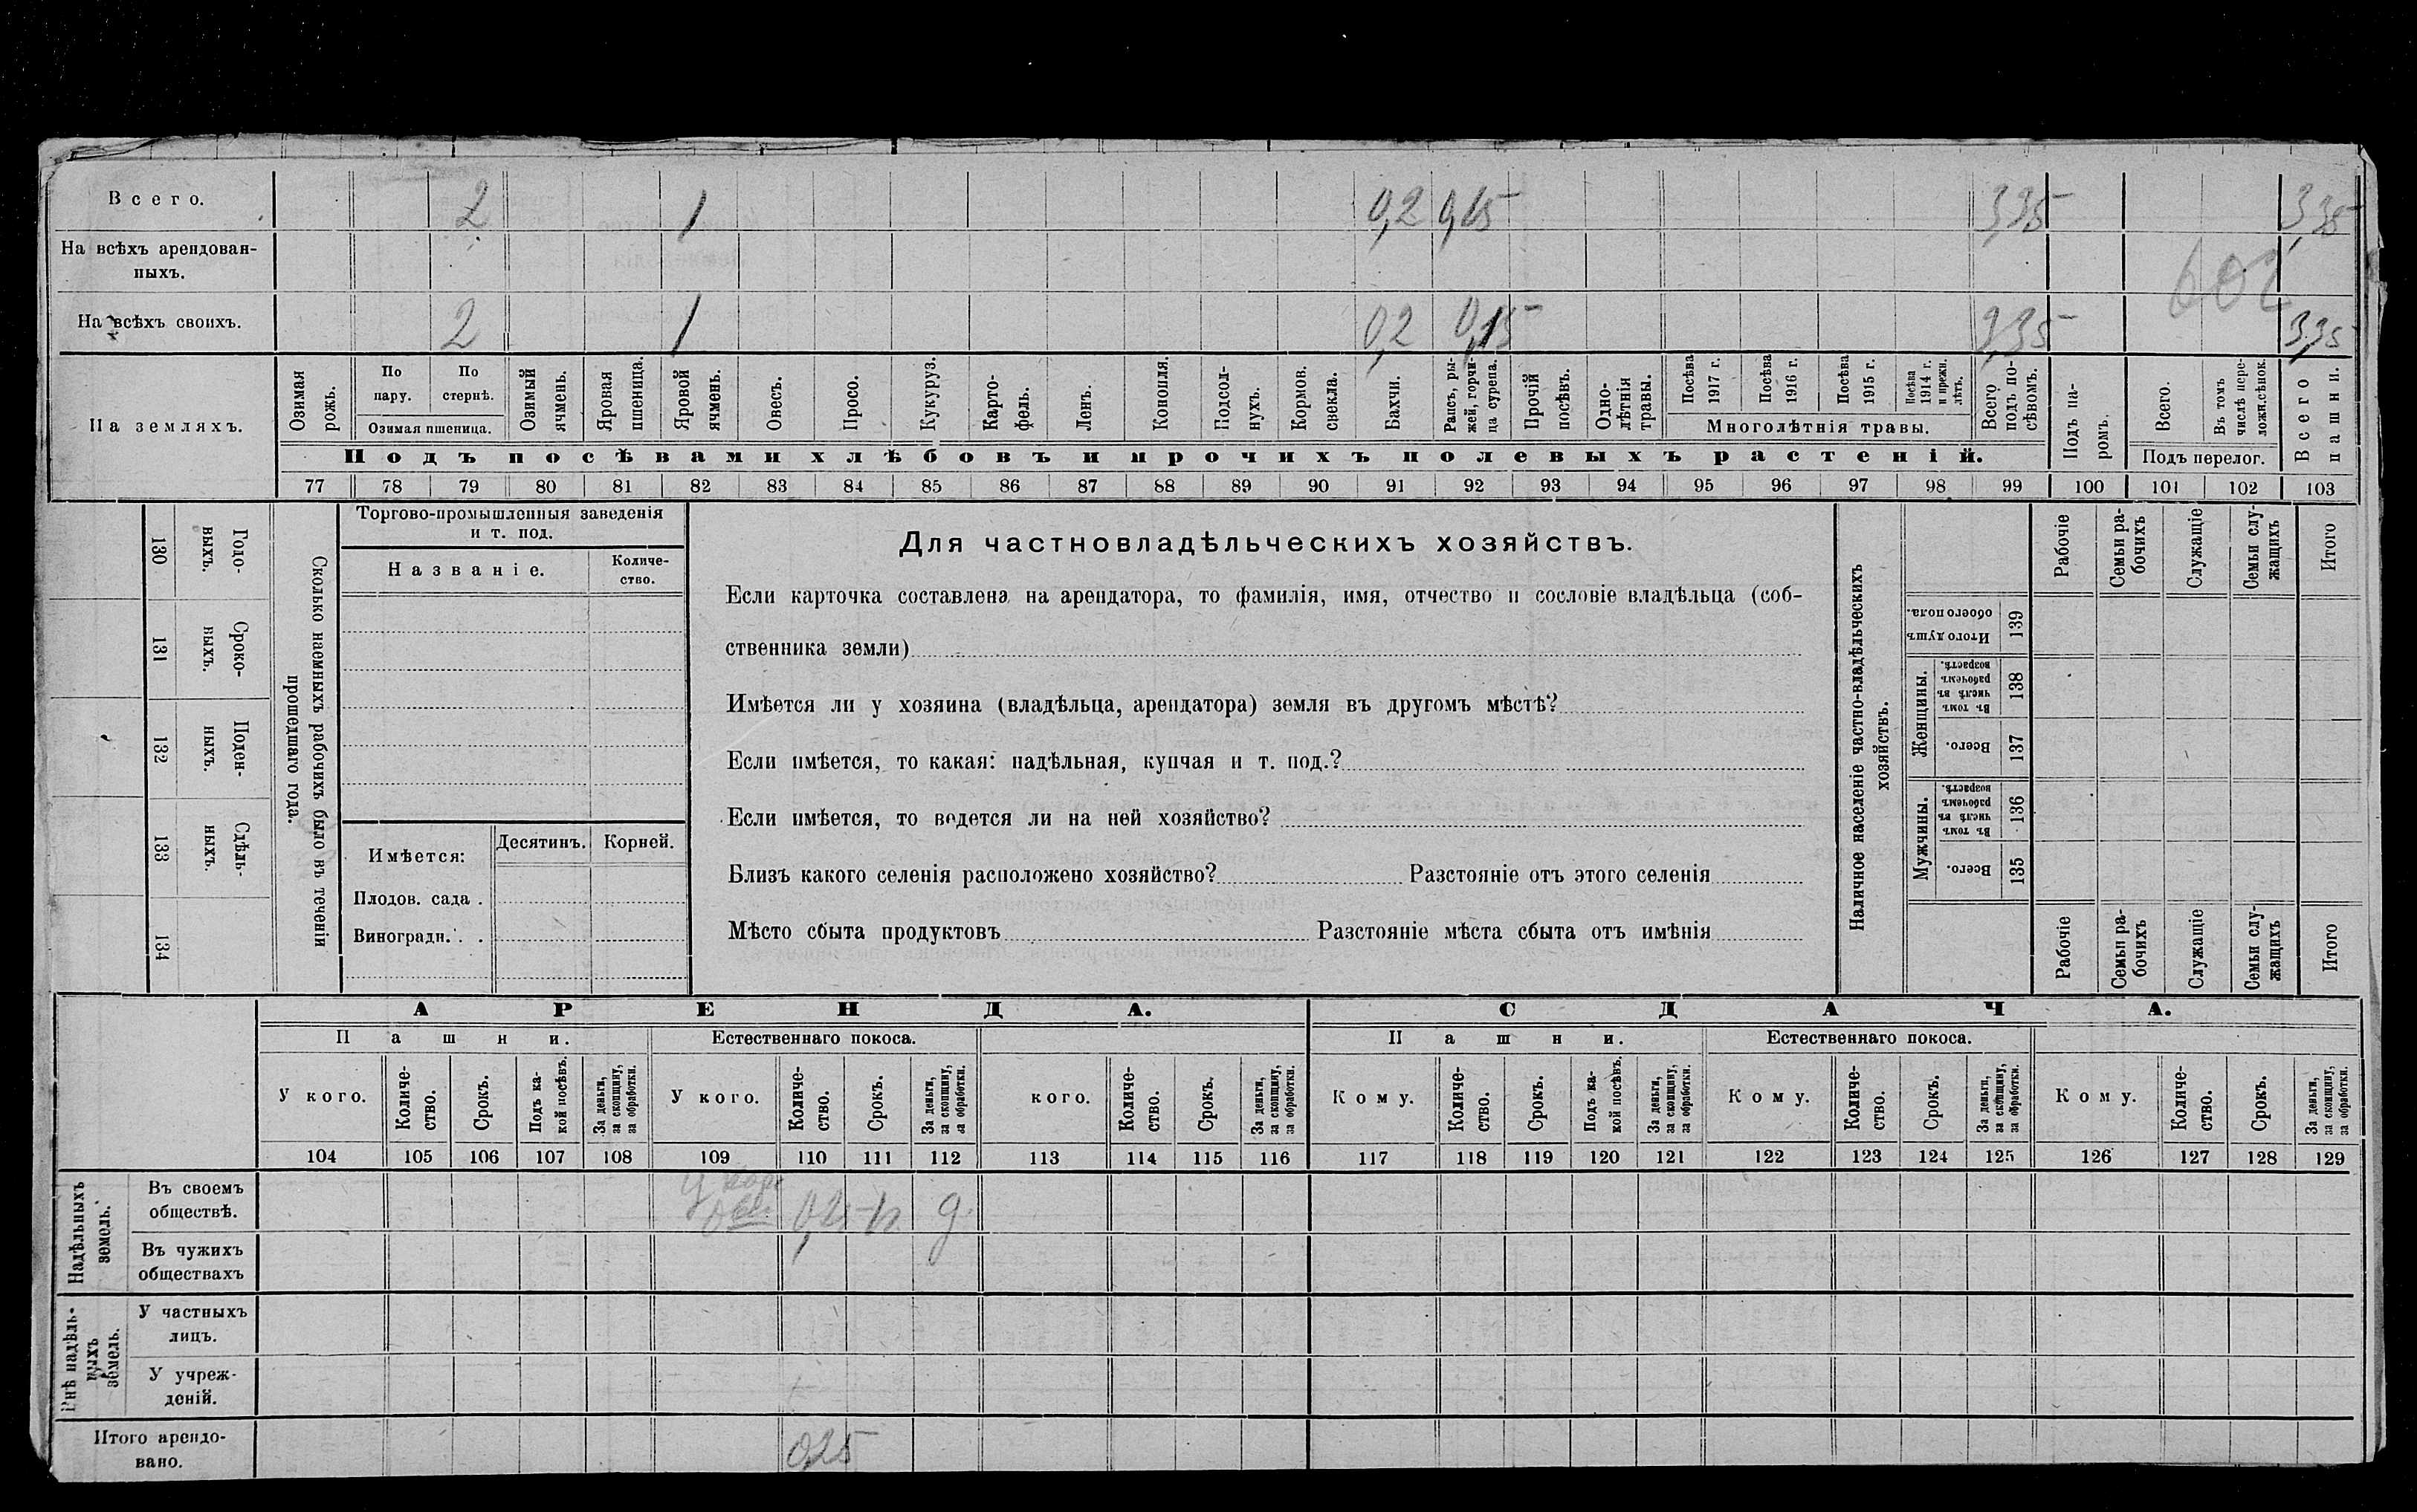 Всего. 2 1 0,2 0,15 3,35 3,35
На всѣхъ арендован-
ныхъ.
На всѣхъ своихъ. 2 1 0,2 0,15 3,35 3,35
На земляхъ.
Озимая рожь.
По пару.
По стернѣ.
Озимая пшеница.
Озимый ячмень.
Яровая пшеница.
Яровой ячмень.
Овесъ.
Просо.
Кукуруз.
Карто-
фель.
Ленъ.
Конопля.
Подсол-
нухъ.
Кормов. свекла.
Бахчи.
Рапсъ, ры-
жей, горчи-
ца сурепа.
Прочій посѣвъ.
Одно-
лѣтнія травы.
Посѣва 1917 г.
Посѣва 1916 г.
Посѣва 1915 г.
Посѣва 1914 г. и прежн. лѣтъ.
Многолѣтнія травы.
Всего подъ по-
сѣвомъ.
Подъ па-
ромъ.
Всего.
Въ томъ числѣ пере-
ложн.сѣнок.
Подъ перелог.
Всего пашни.
Подъ посѣвами хлѣбовъ и прочихъ полевыхъ растеній.
77 78 79 80 81 82 83 84 85 86 87 88 89 90 91 92 93 94 95 96 97 98 99 100 101 102 103
130 Годо-
ныхъ.
131 Сроко-
ныхъ.
132 Поден-
ныхъ.
133 Сдѣль-
ныхъ.
134
Сколько наемныхъ рабочихъ было въ теченіи
прошедшаго года.
Торгово-промышленныя заведенія
и т. под.
Названіе.
Количе-
ство.
Имѣется: Десятинъ. Корней.
Плодов. сада .
Виноградн. . .
Для частновладѣльческихъ хозяйствъ.
Если карточка составлена на арендатора, то фамилія, имя, отчество и сословіе владѣльца (соб-
ственника земли)
Имѣется ли у хозяина (владѣльца, арендатора) земля въ другомъ мѣстѣ?
Если имѣется, то какая: надѣльная, купчая и т. под.?
Если имѣется, то ведется ли на ней хозяйство?
Близъ какого селенія расположено хозяйство? Разстояніе отъ этого селенія
Мѣсто сбыта продуктовъ Разстояніе мѣста сбыта отъ имѣнія
Наличное населеніе частно-владѣльческихъ
хозяйствъ.
Рабочіе
Семьи ра-
бочихъ
Служащіе
Семьи слу-
жащихъ
Итого
Итого душъ обоего пола. 139
Женщины.
Въ томъ числѣ въ рабочемъ возрастѣ. 138
Всего. 137
Мужчины.
Въ томъ числѣ въ рабочемъ возрастѣ. 136
Всего. 135
Рабочіе
Семьи ра-
бочихъ
Служащіе
Семьи слу-
жащихъ
Итого
АРЕНДА. СДАЧА.
Пашни. Естественнаго покоса. Пашни. Естественнаго покоса.
У кого.
Количе-
ство.
Срокъ.
Подъ ка-
кой посѣвъ.
За деньги,
за скопщину,
за обработки.
У кого.
Количе-
ство.
Срокъ.
За деньги,
за скопщину,
за обработки.
кого.
Количе-
ство.
Срокъ.
За деньги,
за скопщину,
за обработки.
Кому.
Количе-
ство.
Срокъ.
Подъ ка-
кой посѣвъ.
За деньги,
за скопщину,
за обработки.
Кому.
Количе-
ство.
Срокъ.
За деньги,
за скопщину,
за обработки.
Кому.
Количе-
ство.
Срокъ.
За деньги,
за скопщину,
за обработки.
104 105 106 107 108 109 110 111 112 113 114 115 116 117 118 119 120 121 122 123 124 125 126 127 128 129
Надѣльныхъ
земель.
Въ своемъ
обществѣ.
Въ чужихъ
обществахъ
Внѣ надѣль-
ныхъ
земель.
У частныхъ
лицъ.
У учреж-
деній.
Итого арендо-
вано. 0,25